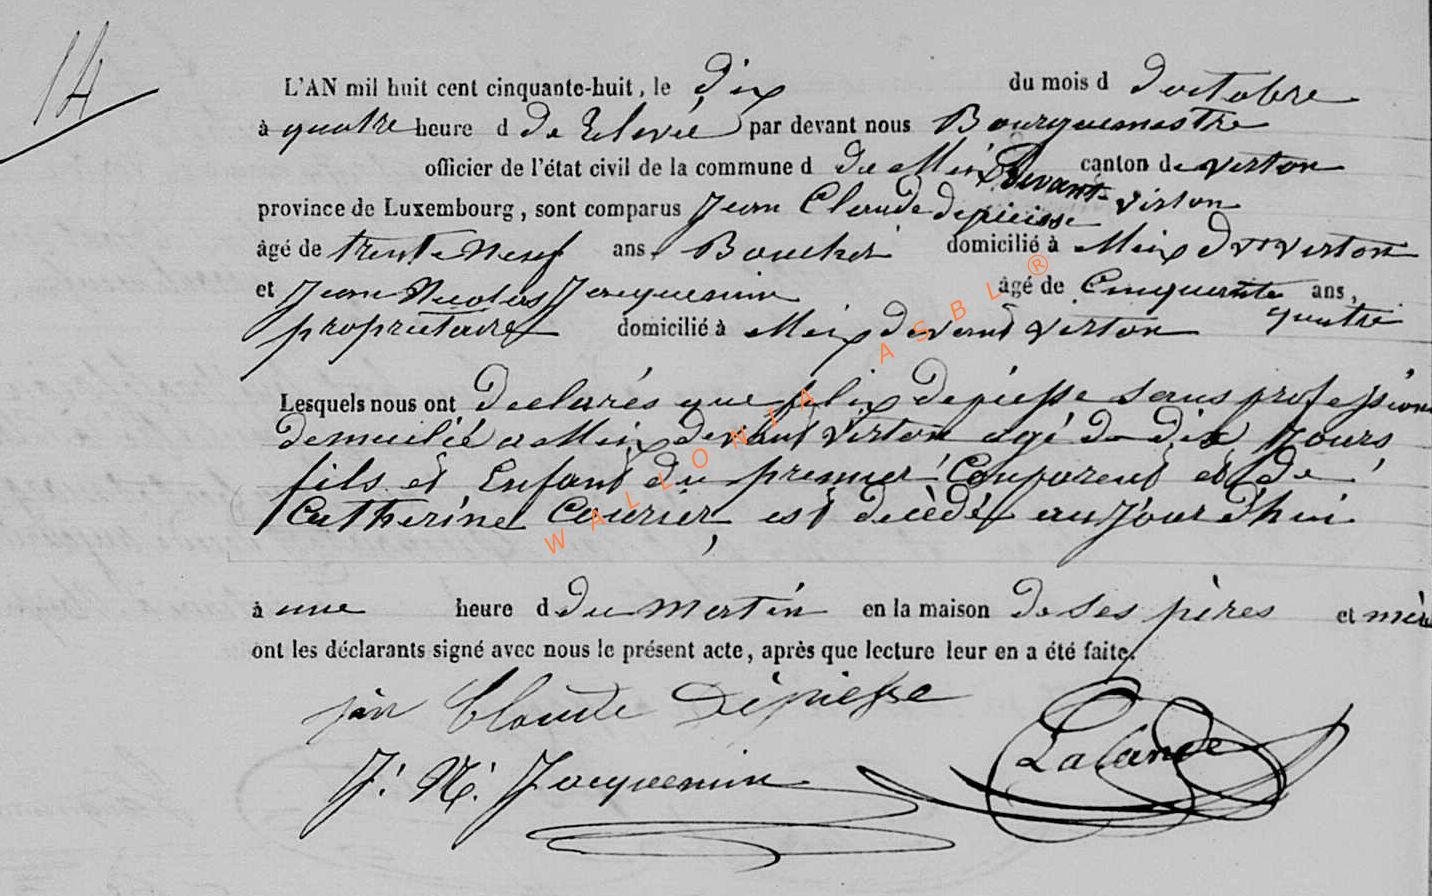 14
L'AN mil huit cent cinquante-huit, le dix du mois d d'octobre
à quatre heure d de Relevée par devant nous Bourguemestre
officier de l'état civil de la commune d de Meix Devant canton de virton
province de Luxembourg, sont comparus Jean Claude depiesse virton
âgé de trente Neuf ans, Boucher domicilié à Meix dvt virton
et Jean Nicolas Jacquemin âgé de Cinquante ans,
quatre
propriétaire domicilié à Meix devant virton
Lesquels nous ont declarés que felix depiesse sans profession
domicilié a Meix devant Virton agé de dix Jours
fils et Enfant du premier Comparent et de
Catherine Courier, est decèdé aujourdhui
à une heure d du matin en la maison de ses pères et mère
ont les déclarants signé avec nous le présent acte, après que lecture leur en a été faite.
jan Claude Depiesse
J. N. Jacquemin
Lalande
WALLONIA ASBL ®